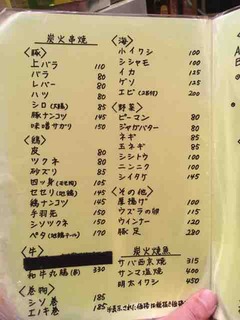 炭火串焼
〈豚〉
上バラ 110
バラ 80
レバー 80
ハツ 80
シロ(大腸) 85
豚ナンコツ 145
味噌サガリ 150
〈鶏〉
皮 80
ツクネ 80
砂ズリ 85
四ッ身 85
セセリ(地鶏) 145
鶏ナンコツ 145
手羽先 150
シソツクネ 150
ペタ(地鶏テール) 170
〈牛〉
和牛丸腸(串) 330
〈巻物〉
シソ巻 185
エノキ巻 185
〈海〉
小イワシ 100
シシャモ 100
イカ 125
ゲソ 125
エビ(2本付) 200
〈野菜〉
ピーマン 80
ジャガバター 80
ネギ 85
玉ネギ 85
シシトウ
ニンニク
シイタケ 145
〈その他〉
厚揚げ 100
ウズラの卵 115
ウィンナー 120
豚足 280
炭火焼魚
サバ西京焼 315
サンマ塩焼 400
明太イワシ 450